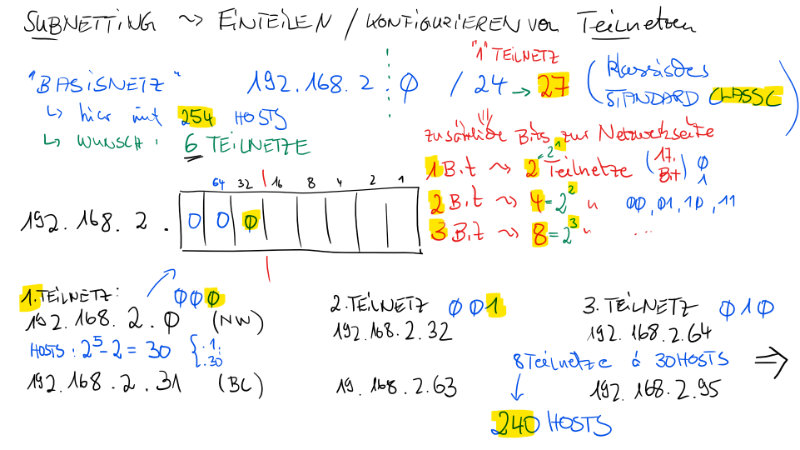 SUBNETTING ~> EINTEILEN / KONFIGURIEREN von Teilnetzen
"1" TEILNETZ
"BASISNETZ" 192.168.2.0 / 24 → 27 (klassisches
STANDARD CLASS C)
↳ hier mit 254 HOSTS
↳ WUNSCH: 6 TEILNETZE
zusätzliche Bits zur Netzwerkseite
1 Bit ~> 2 = 2^1 Teilnetze (17. Bit) 0
1
2 Bit ~> 4 = 2^2 " 00, 01, 10, 11
3 Bit ~> 8 = 2^3 " ...
64 32 16 8 4 2 1
192.168.2. 0 0 0
1. TEILNETZ: 000
192.168.2.0 (NW)
HOSTS: 2^5-2 = 30 { .1 : .30
192.168.2.31 (BC)
2. TEILNETZ 001
192.168.2.32
19.168.2.63
3. TEILNETZ 010
192.168.2.64
8 Teilnetze á 30 HOSTS ⇒
192.168.2.95
240 HOSTS